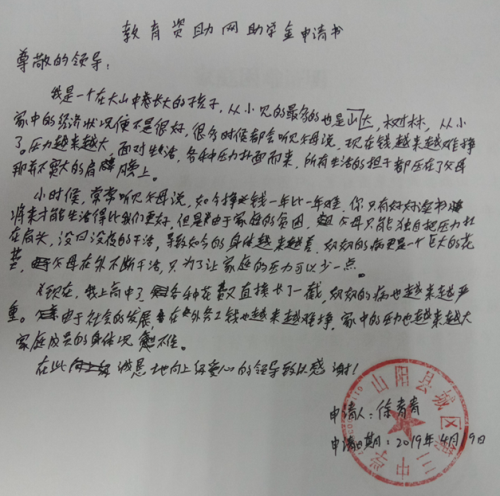 教育资助网助学金申请书
尊敬的领导：
我是一个在大山中长大的孩子，从小见的最多的也是山區，树林，从小
家中的经济状况便不是很好，很多时候都会听见父母说，现在钱越来越难挣
了。压力越来越大，面对生活，各种压力扑面而来，所有生活的担子都压在了父母
那并不宽大的肩膀上。
小时候，常常听见父母说，如今挣些钱一年比一年难，你只有好好读书
将来才能生活得比我们更好，但是由于家庭的贫困，父母只能独自把压力扛
在肩头，没日没夜的干活，导致如今的身体越来越差，奶奶的病更是一个巨大的花
费，父母在外不断干活，只为了让家庭的压力可以少一点。
现在，我上高中了，各种花费直接长了一截，奶奶的病也越来越严
重。由于社会的发展，在外务工钱也越来越难挣，家中的压力也越来越大
家庭成员的身体状况
在此诚恳地向上级爱心的领导致以感谢！
申请人：徐青青
申请日期：2019年4月19日
山阳县城区第三中学